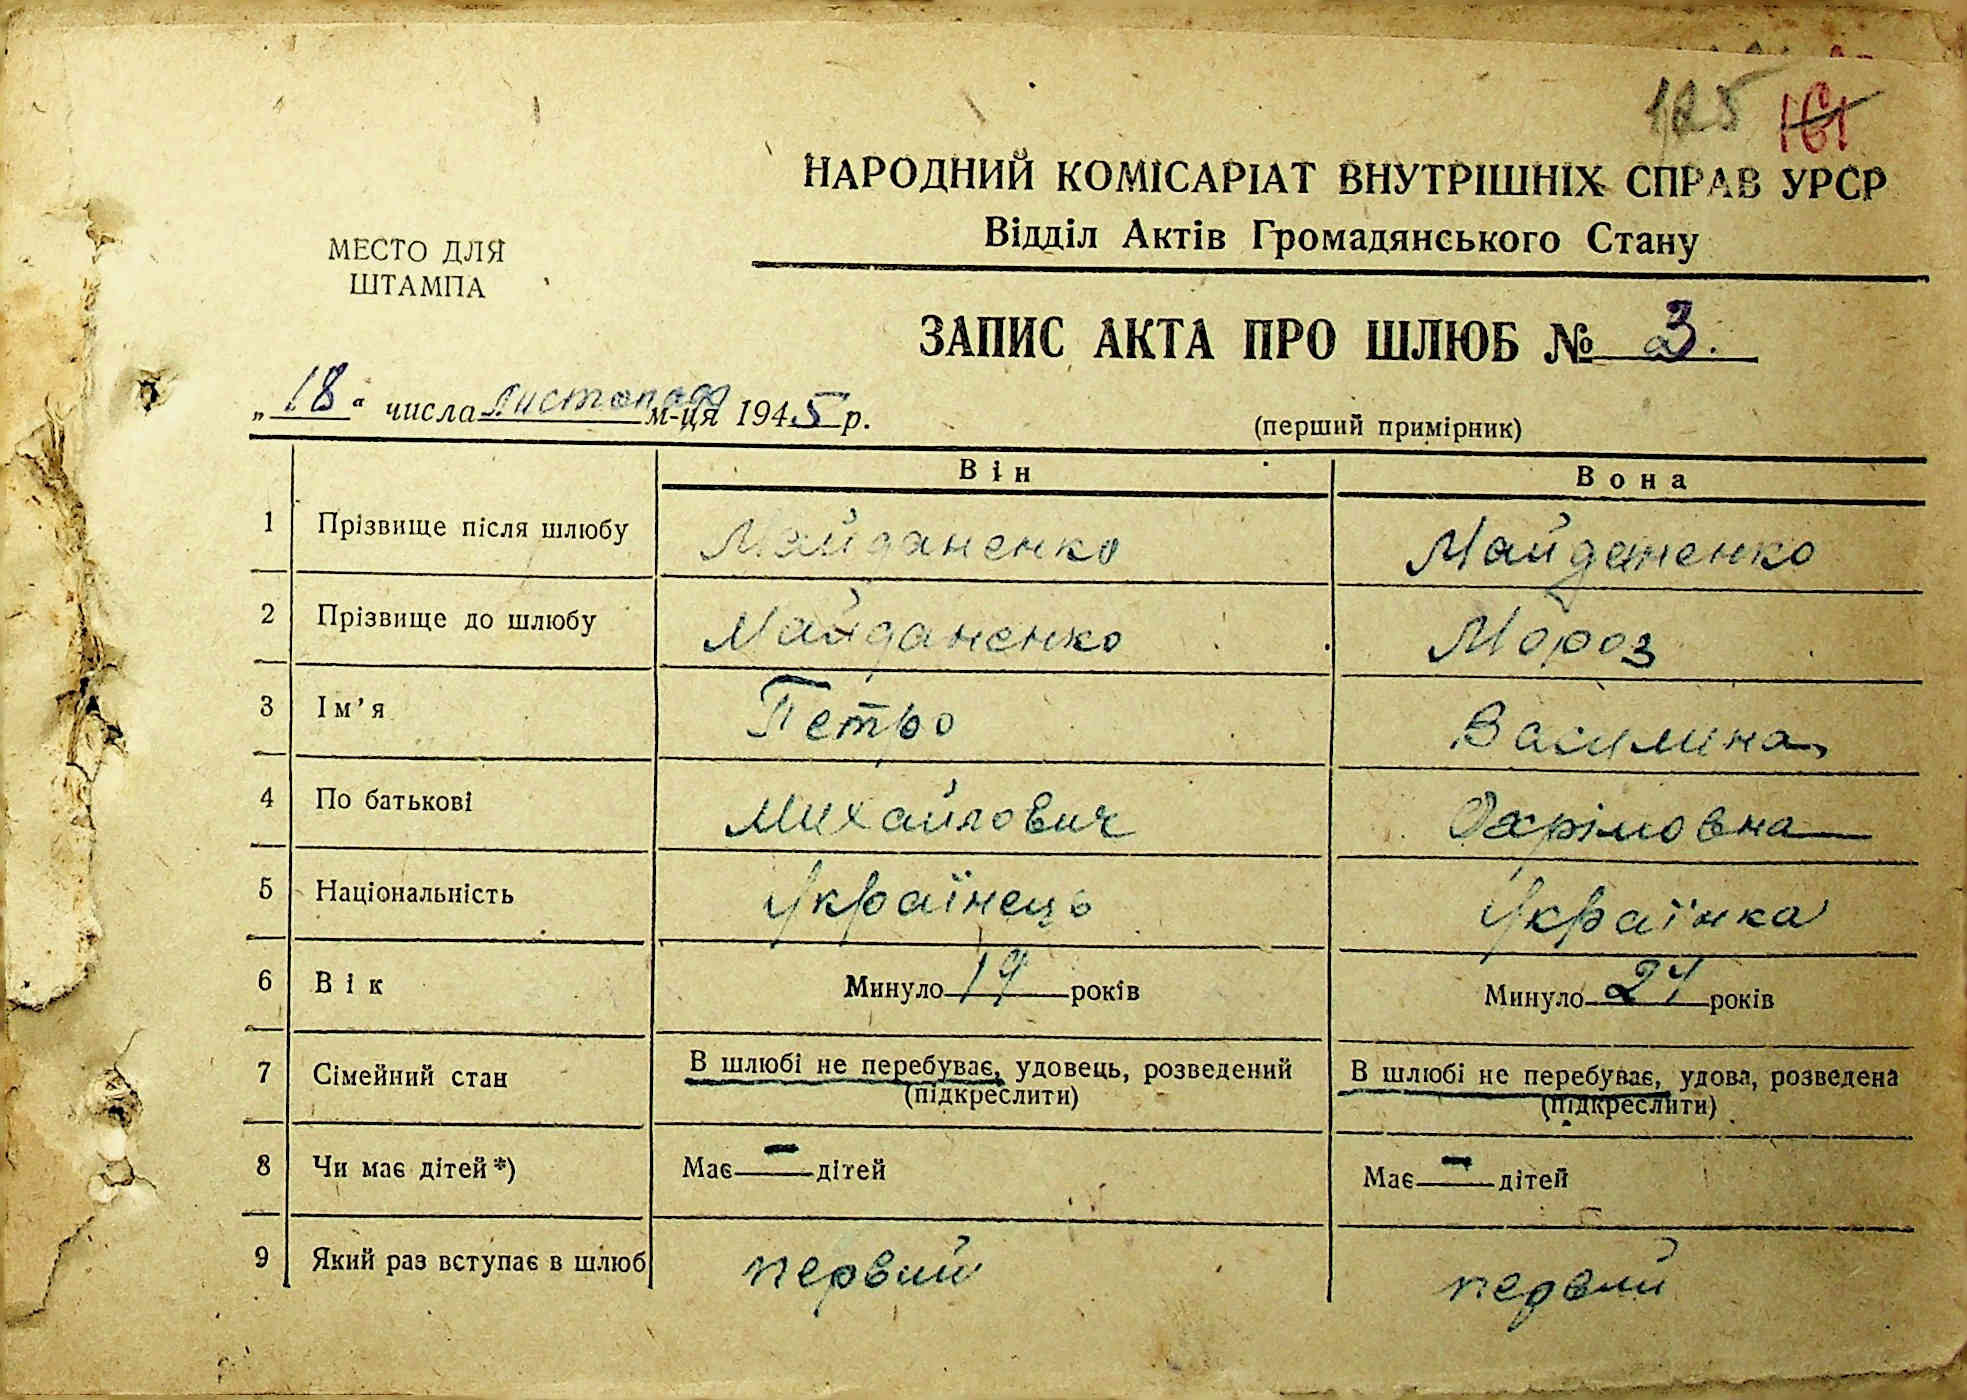 125 161
НАРОДНИЙ КОМІСАРІАТ ВНУТРІШНІХ СПРАВ УРСР
Відділ Актів Громадянського Стану
МЕСТО ДЛЯ
ШТАМПА
ЗАПИС АКТА ПРО ШЛЮБ № 3.
„18“ числа листопада м-ця 1945 р.
(перший примірник)
Він Вона
1 Прізвище після шлюбу Майданенко Майданенко
2 Прізвище до шлюбу Майданенко Мороз
3 Ім’я Петро Василина
4 По батькові Михайлович Охрімовна
5 Національність Українець Українка
6 Вік Минуло 19 років Минуло 24 років
7 Сімейний стан В шлюбі не перебуває, удовець, розведений В шлюбі не перебуває, удова, розведена
(підкреслити) (підкреслити)
8 Чи має дітей *) Має — дітей Має — дітей
9 Який раз вступає в шлюб первий первий